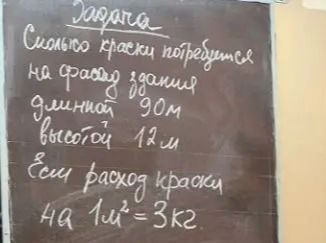 Задача
Сколько краски потребуется
на фасад здания
длинной 90м
высотой 12м
Если расход краски
на 1м² = 3кг.